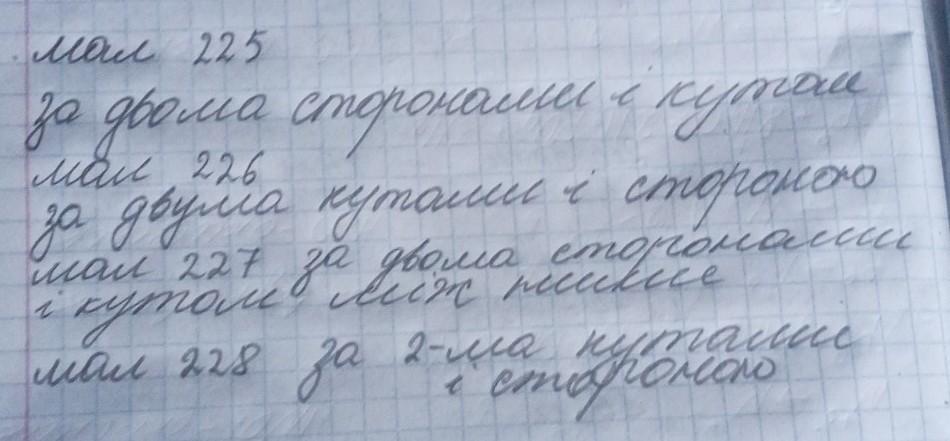 мал 225
за двома сторонами і кутом
мал 226
за двума кутами і стороною
мал 227 за двома сторонами
і кутом між ними
мал 228 за 2-ма кутами
і стороною